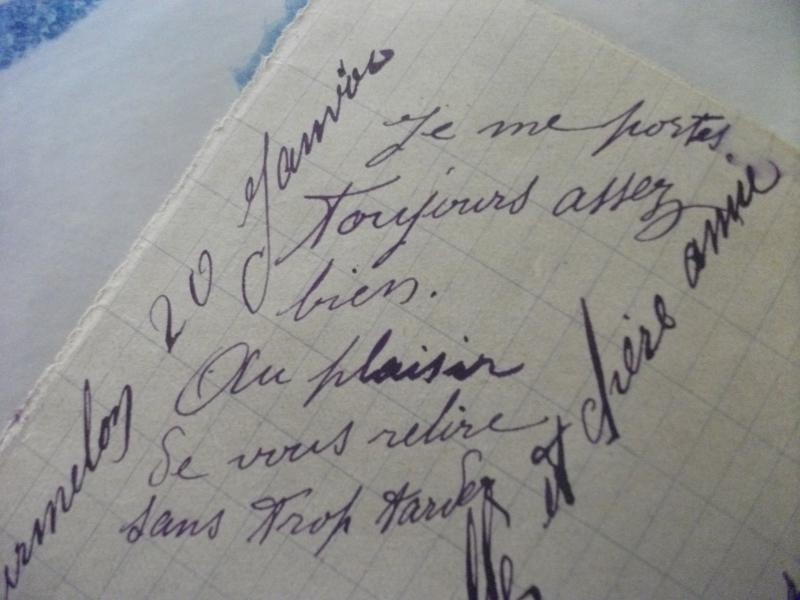 20 Janvier
Je me portes
toujours assez
bien.
Au plaisir
de vous relire
sans trop tarder
et chère amie